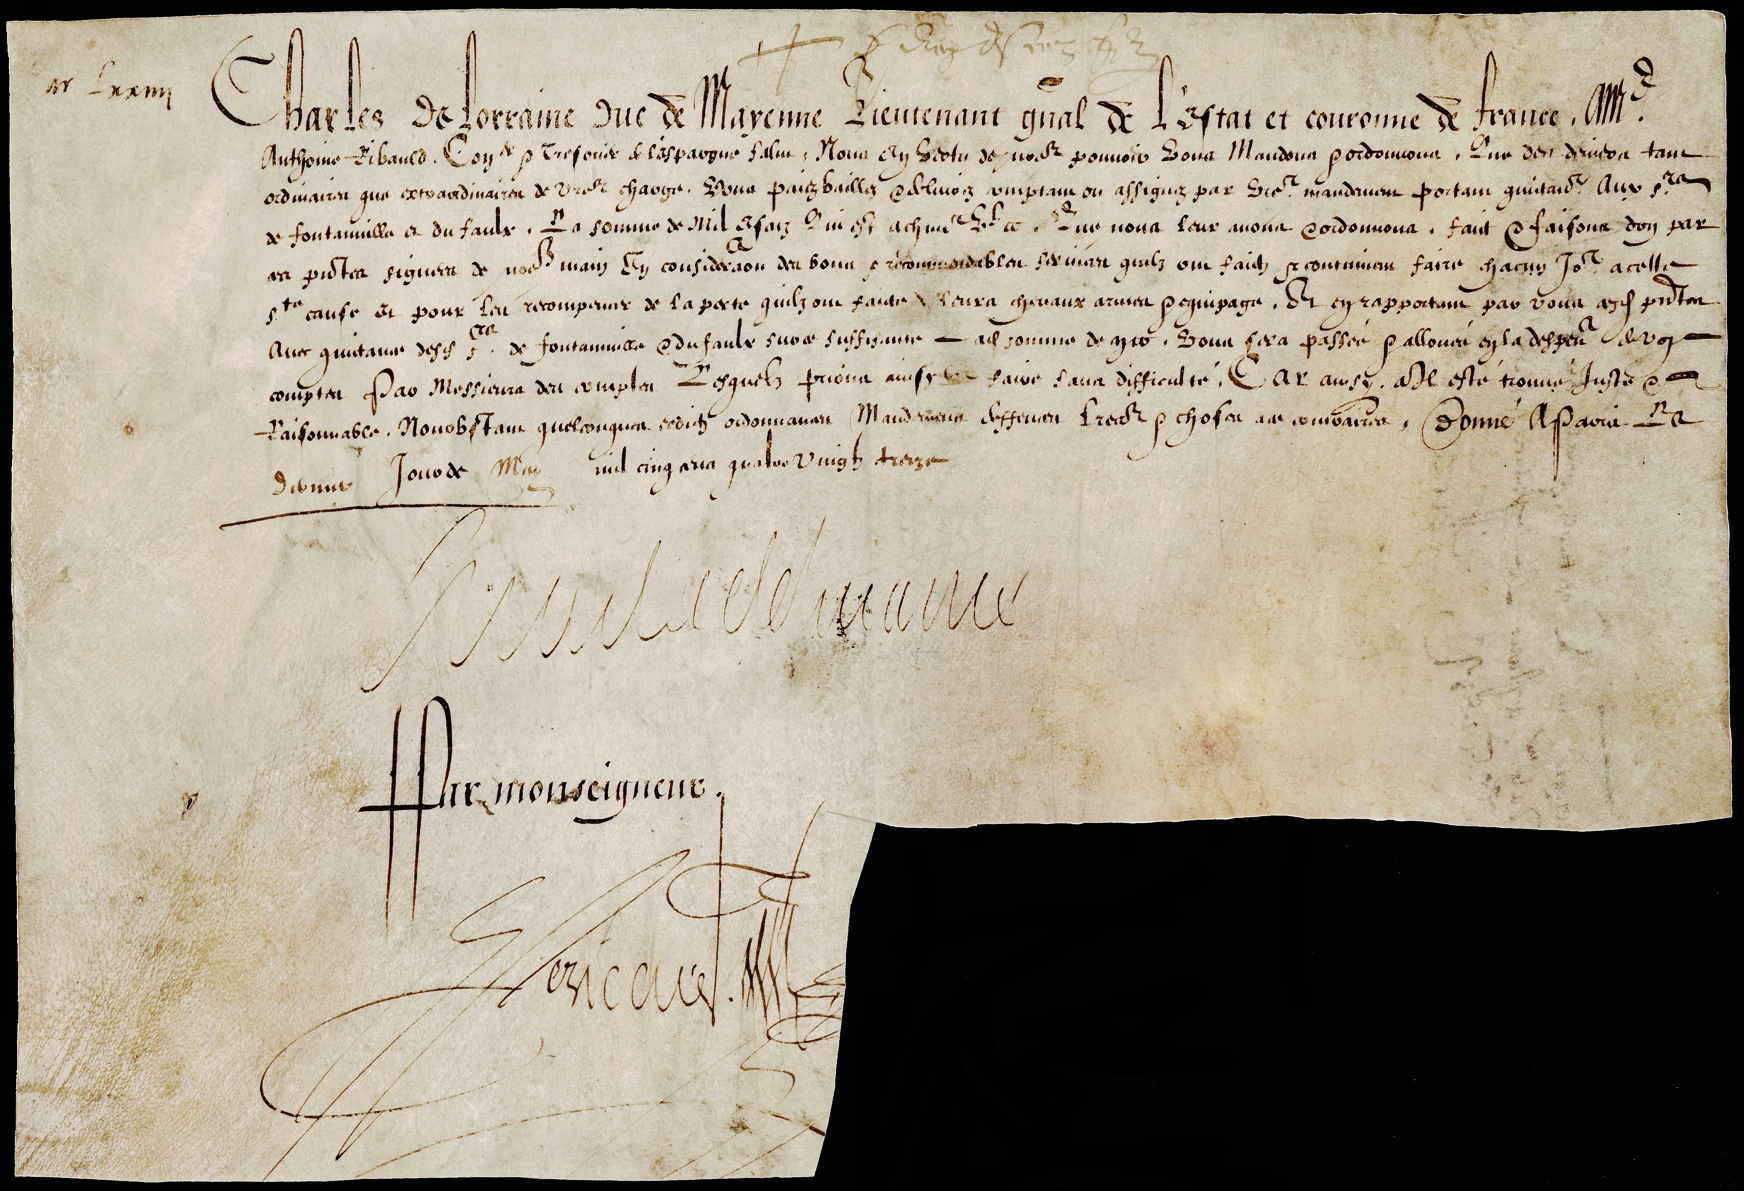 Charles de Lorraine duc de Mayenne Lieutenant gnal de l'Estat et couronne de france. A Me
Anthoine Ribauld. Conr & Tresorier de l'espargne salut. Nous en vertu de nostre pouvoir vous Mandons & ordonnons. Que des deniers tant
ordinaires que extraordinaires de vostre charge. Vous paiez bailler & delivrez comptant ou assignez par vostre mandement portant quictance Aux srs
de fontainville et du faulx. La somme de Mil escuz Que nous leur avons & ordonnons. faict & faisons don par
ces pntes signees de nostre main En consideraon des bons & recommandables services quilz ont faictz & continuent faire chacun Jor a ceste
ste cause Et pour les recompenser de la perte quilz ont faicte de leurs chevaux armes & equipage. Et en rapportant par vous cesd pntes
Avec quictance desd srs de fontainville & du faulx sur ce suffisante lad somme de vous sera passee & allouee en la despence de voz
comptes Par Messieurs des comptes Lesquelz prions ainsy le faire sans difficulté. Car ainsy a Il esté trouvé Juste &
Raisonnable. Nonobstant quelconques edictz ordonnances Mandemens deffences & choses a ce contraires. Donné A Paris Le
Jour de May mil cinq cens quatre vingtz treize
Charles de Lorraine
Par monseigneur.
Pericard